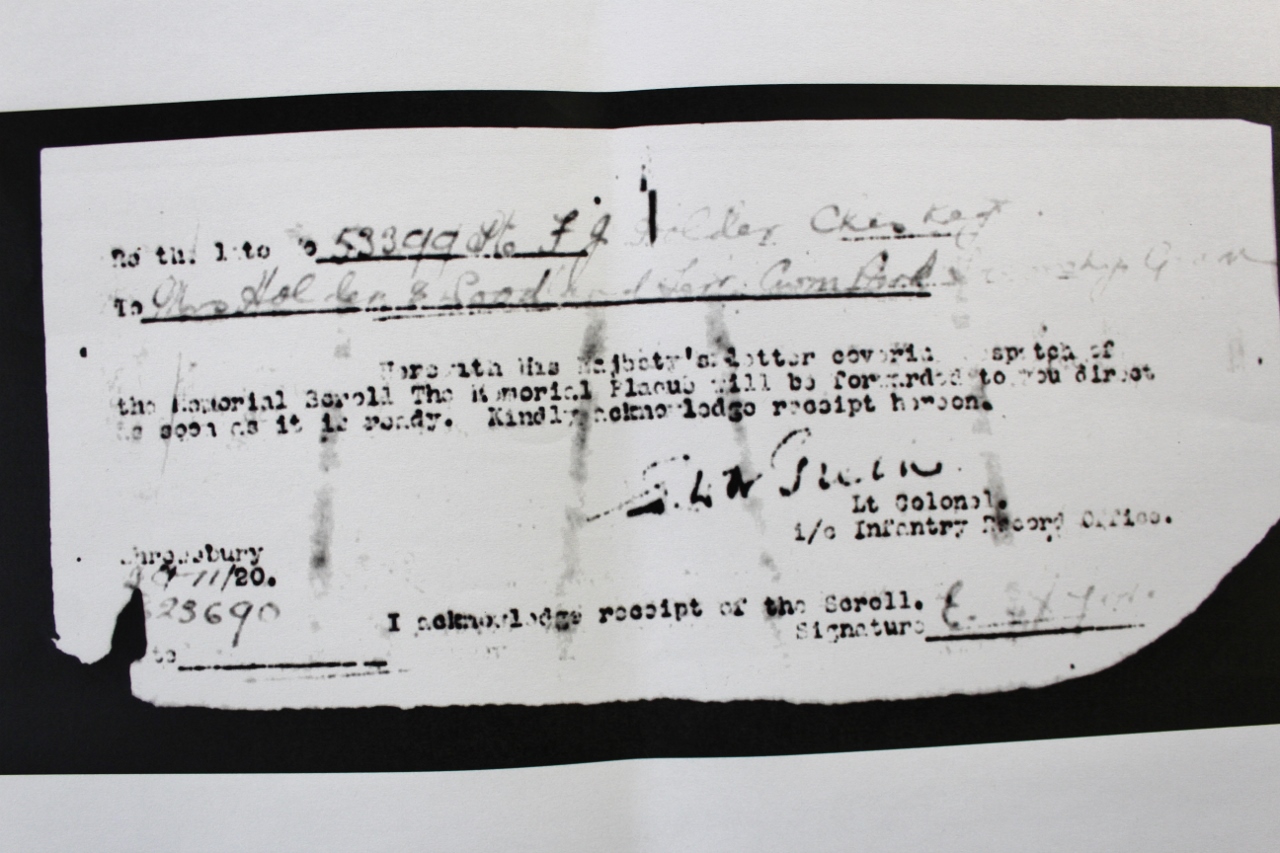 Re the late No 53399 Pte F J Holder Ches Regt.
To Mrs Holder
Herewith His Majesty's letter covering despatch of
the Memorial Scroll The Memorial Plaque will be forwarded to you direct
as soon as it is ready. Kindly acknowledge receipt hereon.
Lt Colonel.
i/c Infantry Record Office.
Shrewsbury
11/20.
23690
I acknowledge receipt of the Scroll.
Signature E.